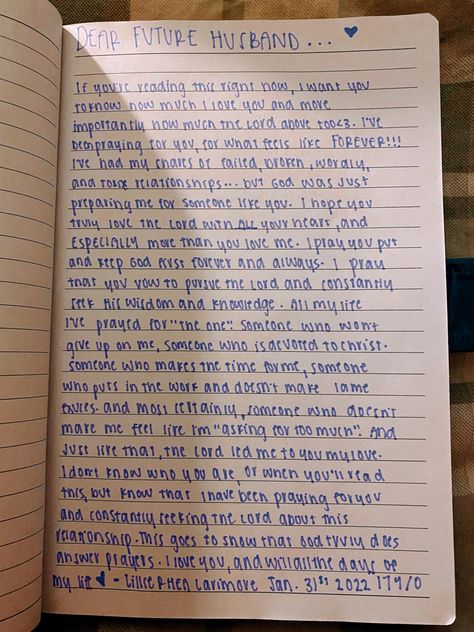 DEAR FUTURE HUSBAND... ♥
If you're reading this right now, I want you
to know how much I love you and more
importantly how much the Lord above too<3. I've
been praying for you, for what feels like FOREVER!!!
I've had my shares of failed, broken, wordly,
and toxic relationships... but God was just
preparing me for someone like you. I hope you
truly love the Lord with ALL your heart, and
ESPECIALLY more than you love me. I pray you put
and keep God first forever and always. I pray
that you vow to pursue the Lord and constantly
seek His wisdom and knowledge. All my life
I've prayed for "the one". Someone who won't
give up on me, someone who is devoted to Christ.
Someone who makes the time for me, someone
who puts in the work and doesn't make lame
exuces. and most certainly, someone who doesn't
make me feel like I'm "asking for too much". And
Just like that, the Lord led me to you my love.
I don't know who you are, or when you'll read
this, but know that I have been praying for you
and constantly seeking the Lord about this
relationship. This goes to show that God truly does
answer prayers. I love you, and will all the days of
my life ♥ - Larimore Jan. 31st 2022